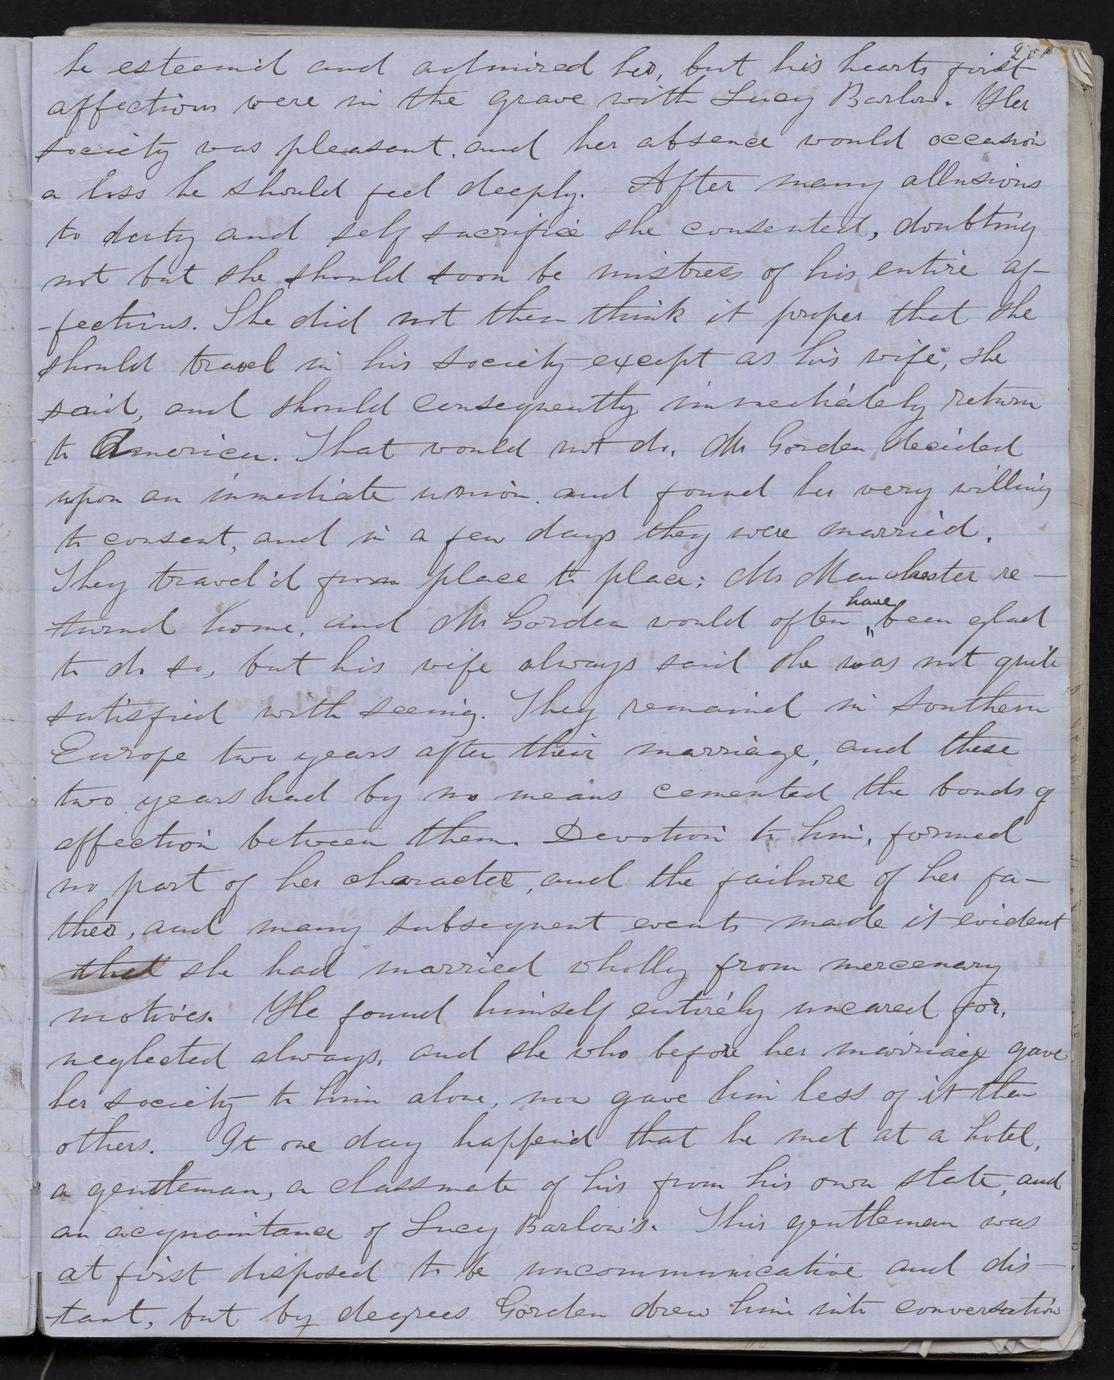 he esteem'd and admired her, but his hearts first
affections were in the grave with Lucy Barlow. Her
society was pleasant, and her absence would occasion
a loss he should feel deeply. After many allusions
to duty and self sacrifice she consented, doubting
not but she should soon be mistress of his entire af-
-fections. She did not then think it proper that she
should travel in his society except as his wife, she
said, and should consequently immediately return
to America. That would not do. Mr Gorden decided
upon an immediate union, and found her very willing
to consent, and in a few days they were married.
They travel'd from place to place; Mr Manchester re-
turned home, and Mr Gorden would often have been glad
to do so, but his wife always said she was not quite
satisfied with seeing. They remained in Southern
Europe two years after their marriage, and these
two years had by no means cemented the bonds of
affection between them. Devotion to him, formed
no part of her character, and the failure of her fa-
ther, and many subsequent events made it evident
that she had married wholly from mercenary
motives. He found himself entirely uncared for,
neglected always, and she who before her marriage gave
her society to him alone, now gave him less of it then
others. It one day happen'd that he met at a hotel,
a gentleman, a classmate of his from his own state, and
an acquaintance of Lucy Barlow's. This gentleman was
at first disposed to be uncommunicative and dis-
tant, but by degrees Gorden drew him into conversation